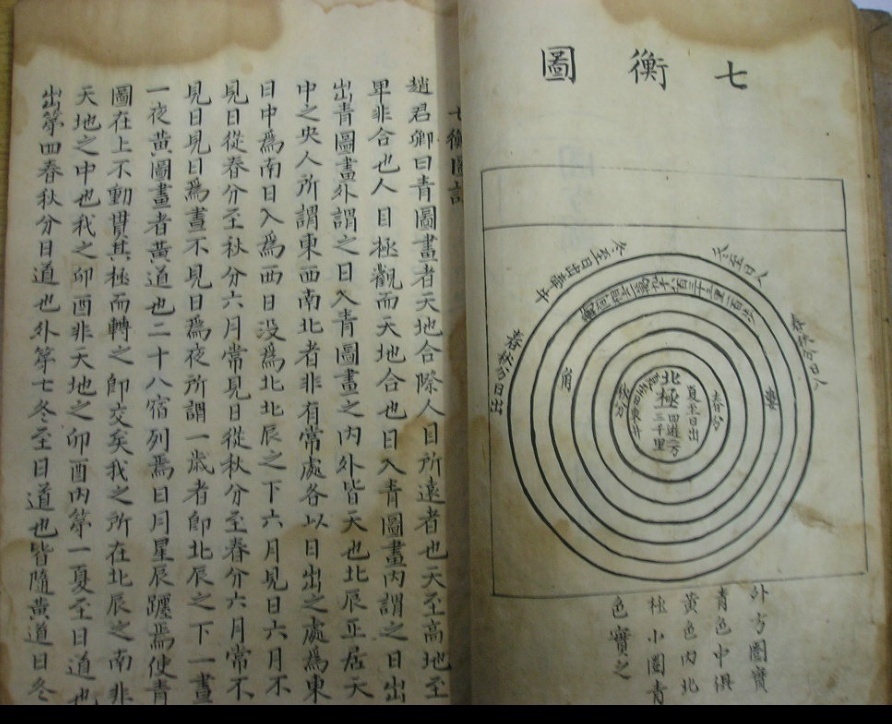 七衡圖
冬至日出牽牛
春秋分日入
春秋分日出
角
婁
北極
夏至日出
春分
三千里
外方圈實
青色中俱
黃色内北
極小圈青
色實之
七衡圖
趙君卿曰青圖畫者天地合際人目所遠者也天至高地至
卑非合也人目極觀而天地合也日入青圖畫内謂之日出
出青圖畫外謂之日入青圖畫之内外皆天也北辰正居天
中之央人所謂東西南北者非有常處各以日出之處爲東
日中爲南日入爲西日没爲北北辰之下六月見日六月不
見日從春分至秋分六月常見日從秋分至春分六月常不
見日見日爲晝不見日爲夜所謂一歲者卽北辰之下一晝
一夜黃圖畫者黃道也二十八宿列焉日月星辰躔焉使青
圖在上不動貫其極而轉之卽交矣我之所在北辰之南非
天地之中也我之卯酉非天地之卯酉内第一夏至日道也
出第四春秋分日道也外第七冬至日道也皆隨黃道日冬